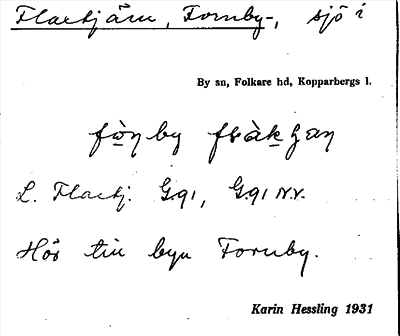 Flacktjärn, Fornby-, sjö i
By sn, Folkare hd, Kopparbergs l.
fò̱ŋby
L. Flacktj. G91, G91 NV.
Hör till byn Fornby.
Karin Hessling 1931